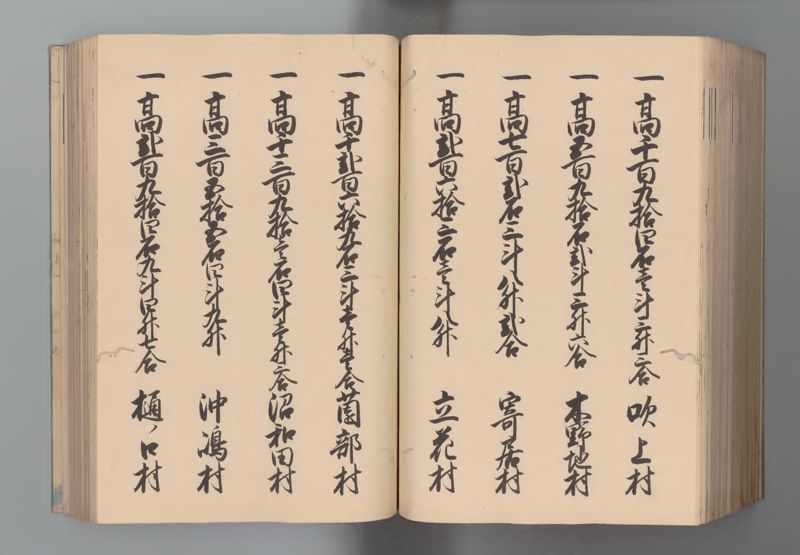 一高千百九拾四石壱斗三升三合 吹上村
一高五百九拾石弐斗三升六合 本野地村
一高七百弐石三斗八升弐合 寄居村
一高弐百六拾三石壱斗八升 立花村
一高千弐百六拾九石三斗壱升壱合 薗部村
一高千三百九拾壱石四斗壱升三合 沼和田村
一高三百五拾五石四斗九升 沖嶋村
一高弐百九拾四石九斗四升七合 樋ノ口村